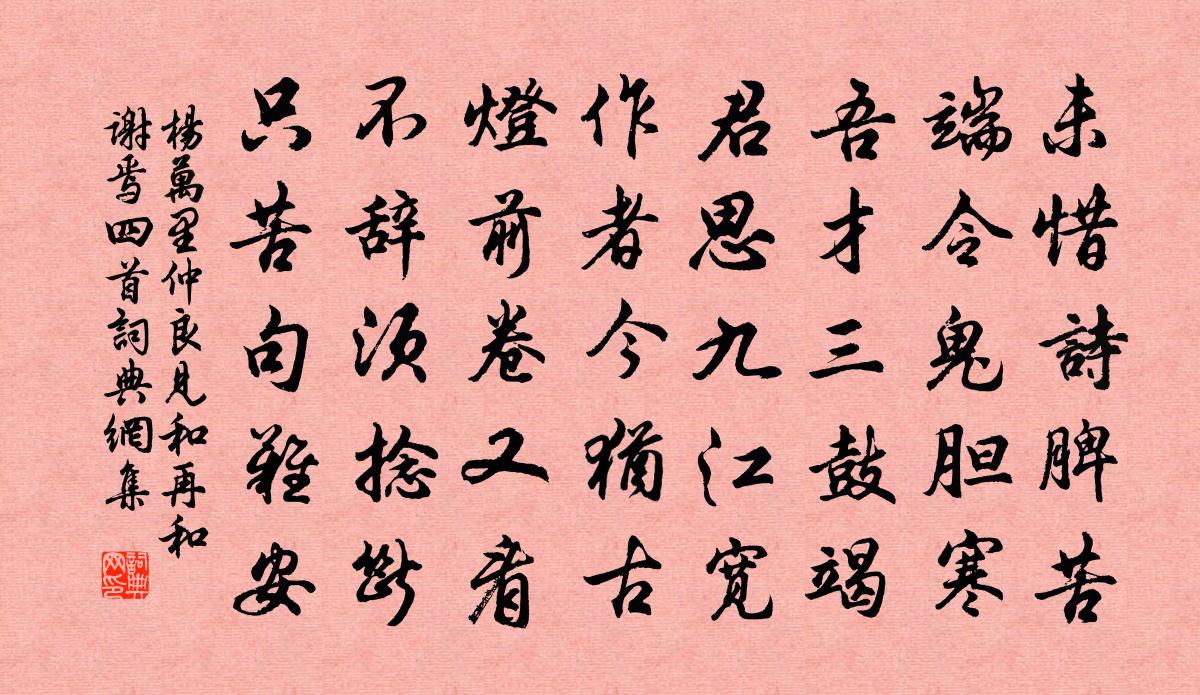 未惜詩脾苦
端令鬼胆寒
吾才三鼓竭
君思九江寬
作者今猶古
燈前卷又看
不辞須捻斷
只苦句難安
楊萬里仲良見和再和
謝焉四首詞典網集
詞典网印